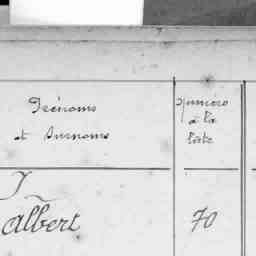 Prénoms
et Surnoms
Numéro
à la
liste
J
Albert
70